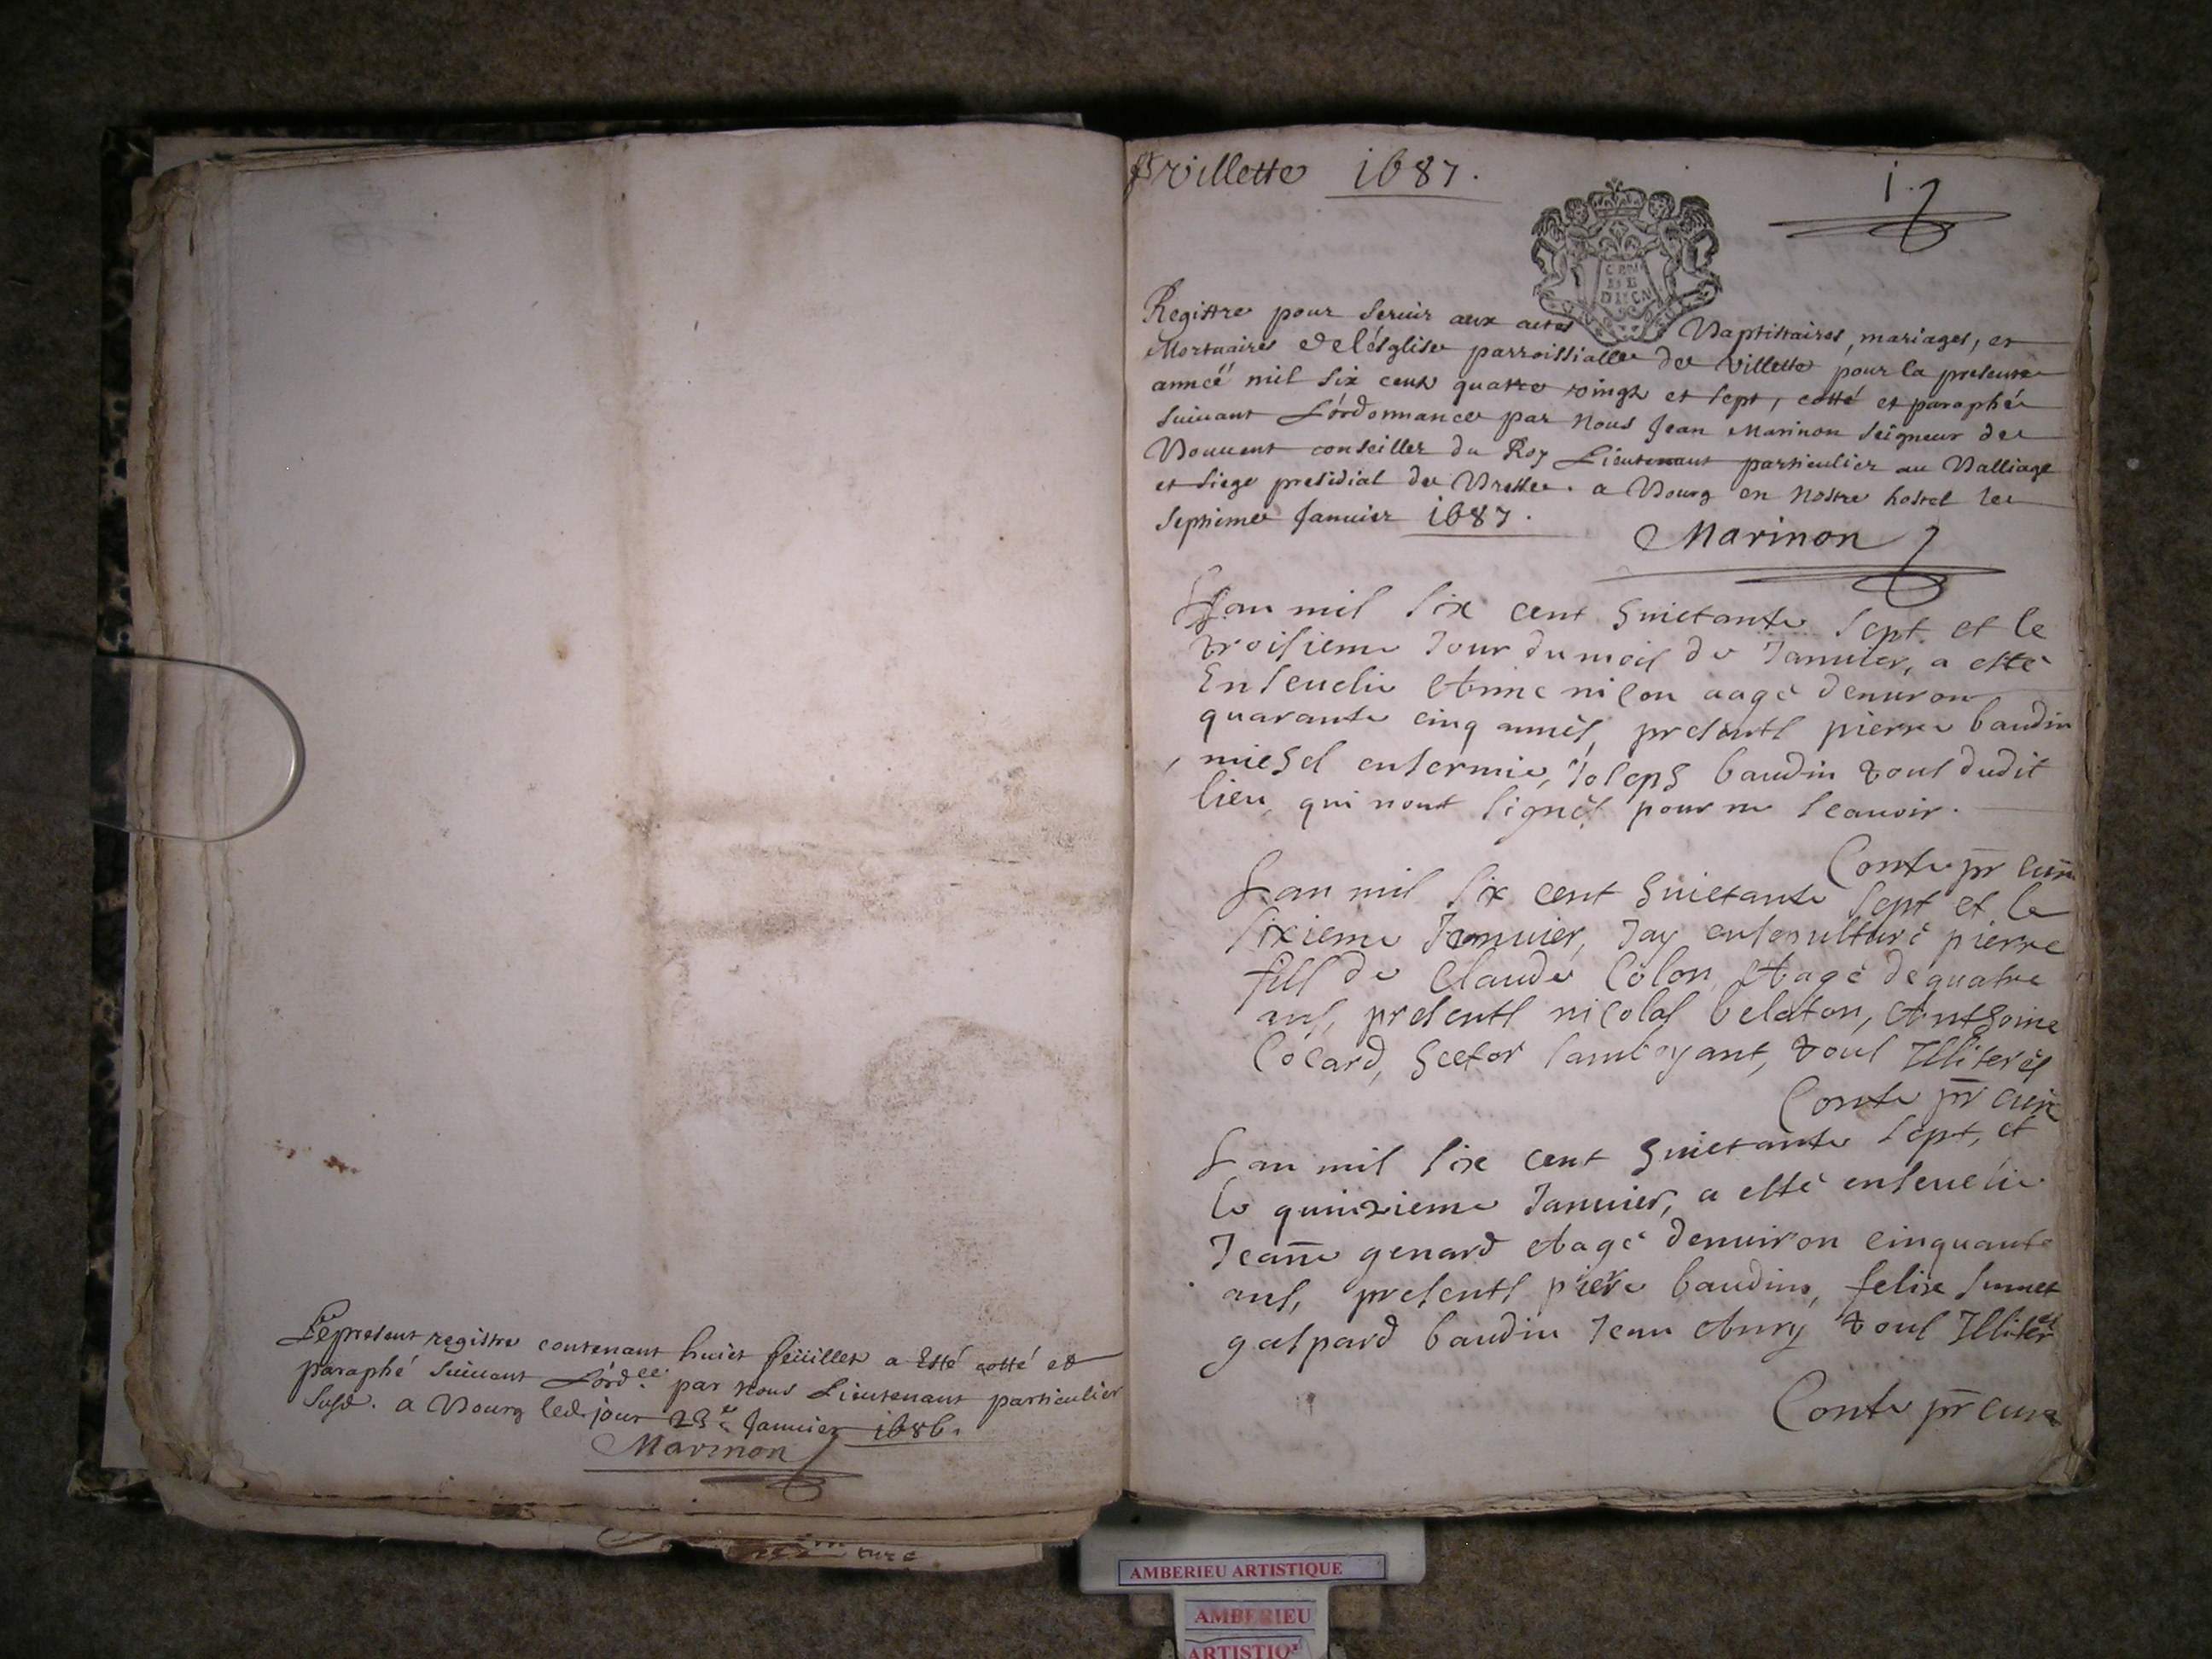 Le present registre contenant huict feüillets a Esté cotté et
paraphé suiuant L'ord.ce par nous Lieutenant particulier
susd. a Bourg led. jour 23.e Januier 1686.
Marinon
Villette 1687.
1.
Registre pour seruir aux actes Baptistaires, mariages, et
Mortuaires de l'ésglise parroissialle de Villette pour la presente
anneé mil six cens quatre vingts et sept, cotté et paraphée
suiuant L'órdonnance par Nous Jean Marinon seigneur de
Bouuent conseiller du Roy Lieutenant particulier au Balliage
et siege presidial de Bresse. a Bourg en nostre hostel le
septieme Januier 1687.
Marinon
Lan mil six cent huictante sept et le
troisieme Jour du mois de Januier, a esté
Enseueli Anne aagé denuiron
quarante cinq anneés, presents pierre baudin
michel enfermie, Joseph baudin tous dudit
lieu, qui nont signés pour ne scauoir.
Conte pr curé
Lan mil six cent huictante sept et le
sixieme Januier, Jay ensepulturé pierre
fils de Claude Colon, Aagé de quatre
ans, presents nicolas belaton, Anthoine
Cocard, hector tous Illiterés
Conte pr curé
Lan mil six cent huictante sept, et
le quinzieme Januier, a esté enseuelie
Jeañe genard Aagé denuiron cinquante
ans, presents piere baudin, felix
gaspard baudin Jean Anry tous Illiterés
Conte pr curé
AMBERIEU ARTISTIQUE
AMBERIEU
ARTISTIQ